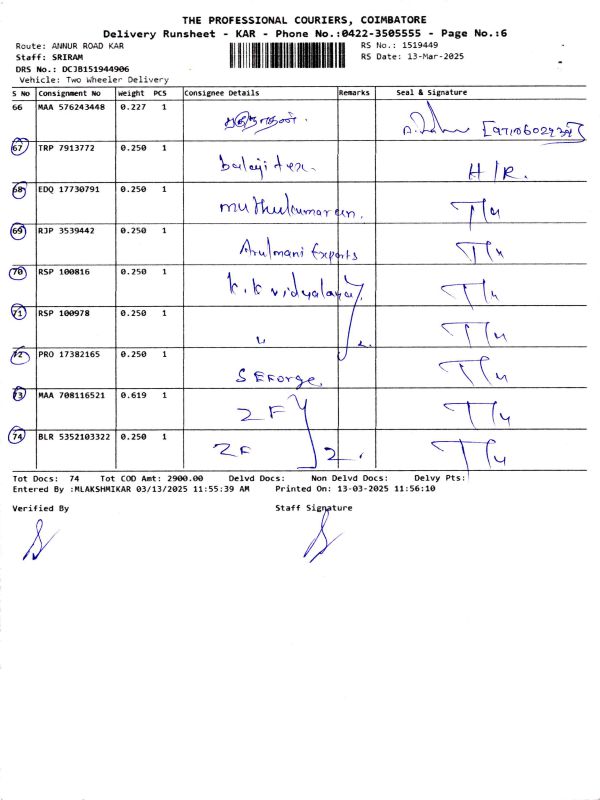 THE PROFESSIONAL COURIERS, COIMBATORE
Delivery Runsheet - KAR - Phone No.:0422-3505555 - Page No.:6
Route: ANNUR ROAD KAR
RS No.: 1519449
Staff: SRIRAM
RS Date: 13-Mar-2025
DRS No.: DCJB151944906
Vehicle: Two Wheeler Delivery
S No Consignment No Weight PCS Consignee Details Remarks Seal & Signature
66 MAA 576243448 0.227 1
67 TRP 7913772 0.250 1
balaji tex. H/R.
68 EDQ 17730791 0.250 1
muthukumaran.
69 RJP 3539442 0.250 1
Arulmani Exports
70 RSP 100816 0.250 1
k.k vidyalaya
71 RSP 100978 0.250 1
" 2.
72 PRO 17382165 0.250 1
SEForge.
73 MAA 708116521 0.619 1
ZF
74 BLR 5352103322 0.250 1
ZF 2.
Tot Docs: 74 Tot COD Amt: 2900.00 Delvd Docs: Non Delvd Docs: Delvy Pts:
Entered By :MLAKSHMIKAR 03/13/2025 11:55:39 AM Printed On: 13-03-2025 11:56:10
Verified By Staff Signature